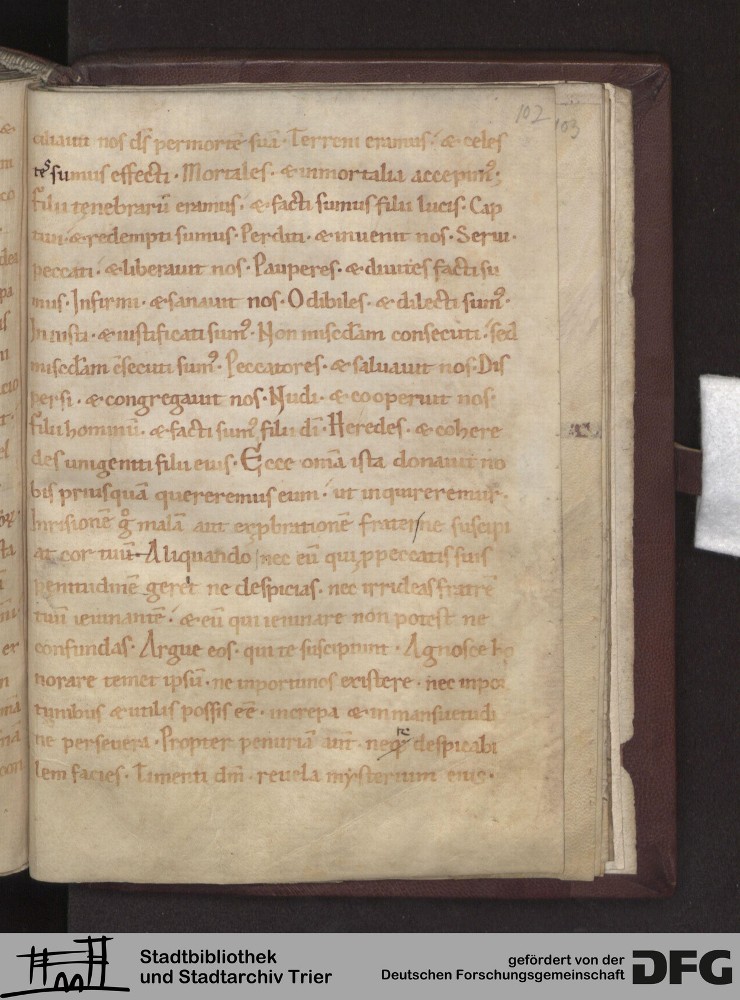 102
103
ciliauit nos ds̄ per mortē suā. Terreni eramus. & celes
tes sumus effecti. Mortales. & inmortalia accepim᷒.
filii tenebrarū eramus. & facti sumus filii lucis. Cap
tiui. & redempti sumus. Perditi. & inuenit nos. Serui.
peccati. & liberauit nos. Pauperes. & diuites facti su
mus. Infirmi. & sanauit nos. Odibiles. & dilecti sum᷒.
Iniusti. & iustificati sum᷒. Non misc̄dam consecuti. sed
misc̄dam c̄secuti sum᷒. Peccatores. & saluauit nos. Dis
persi. & congregauit nos. Nudi. & cooperuit nos.
filii hominū. & facti sum᷒ filii dī. Heredes. & cohere
des unigeniti filii eius. Ecce om̄a ista donauit no
bis priusquā quereremus eum. ut inquireremur.
Inrisionē gͦ malā aut exp̱brationē frater ne suscipi
at cor tuū. Aliquando nec eū qui p̱ peccatis suis
penitudinē geret ne despicias. nec irrideas fratrē
tuū ieiunantē. & eū qui ieiunare non potest ne
confundas. Argue eos. qui te suscipiunt. Agnosce ho
norare temet ipsū. ne inportunos existere. nec inpor
tunibus & utilis possis eē. increpa & in mansuetudi
ne perseuera. Propter penuriā aut. neq; te despicabi
lem facies. Timenti dm̄. reuela mysterium eius.
Stadtbibliothek
und Stadtarchiv Trier
gefördert von der
Deutschen Forschungsgemeinschaft
DFG